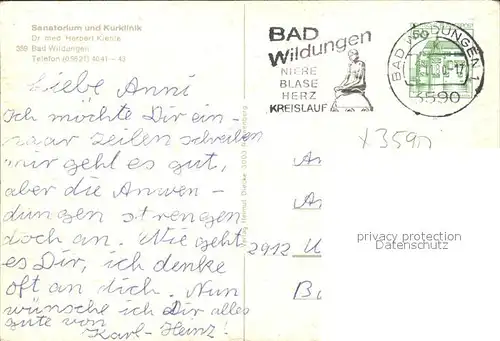 Sanatorium und Kurklinik
Dr. med. Herbert Kienle
359 Bad Wildungen
Telefon (05621) 4041 - 43
Liebe Anni
Ich möchte Dir ein-
paar Zeilen schreiben
mir geht es gut,
aber die Anwen-
dungen strengen
doch an. Wie geht
es Dir, ich denke
oft an dich. Nun
wünsche ich Dir alles
gute von
Karl-Heinz!
BAD
Wildungen
NIERE
BLASE
HERZ
KREISLAUF
BAD WILDUNGEN 1
3590
x 3590
An
An
2912 U
Ba
privacy protection
Datenschutz